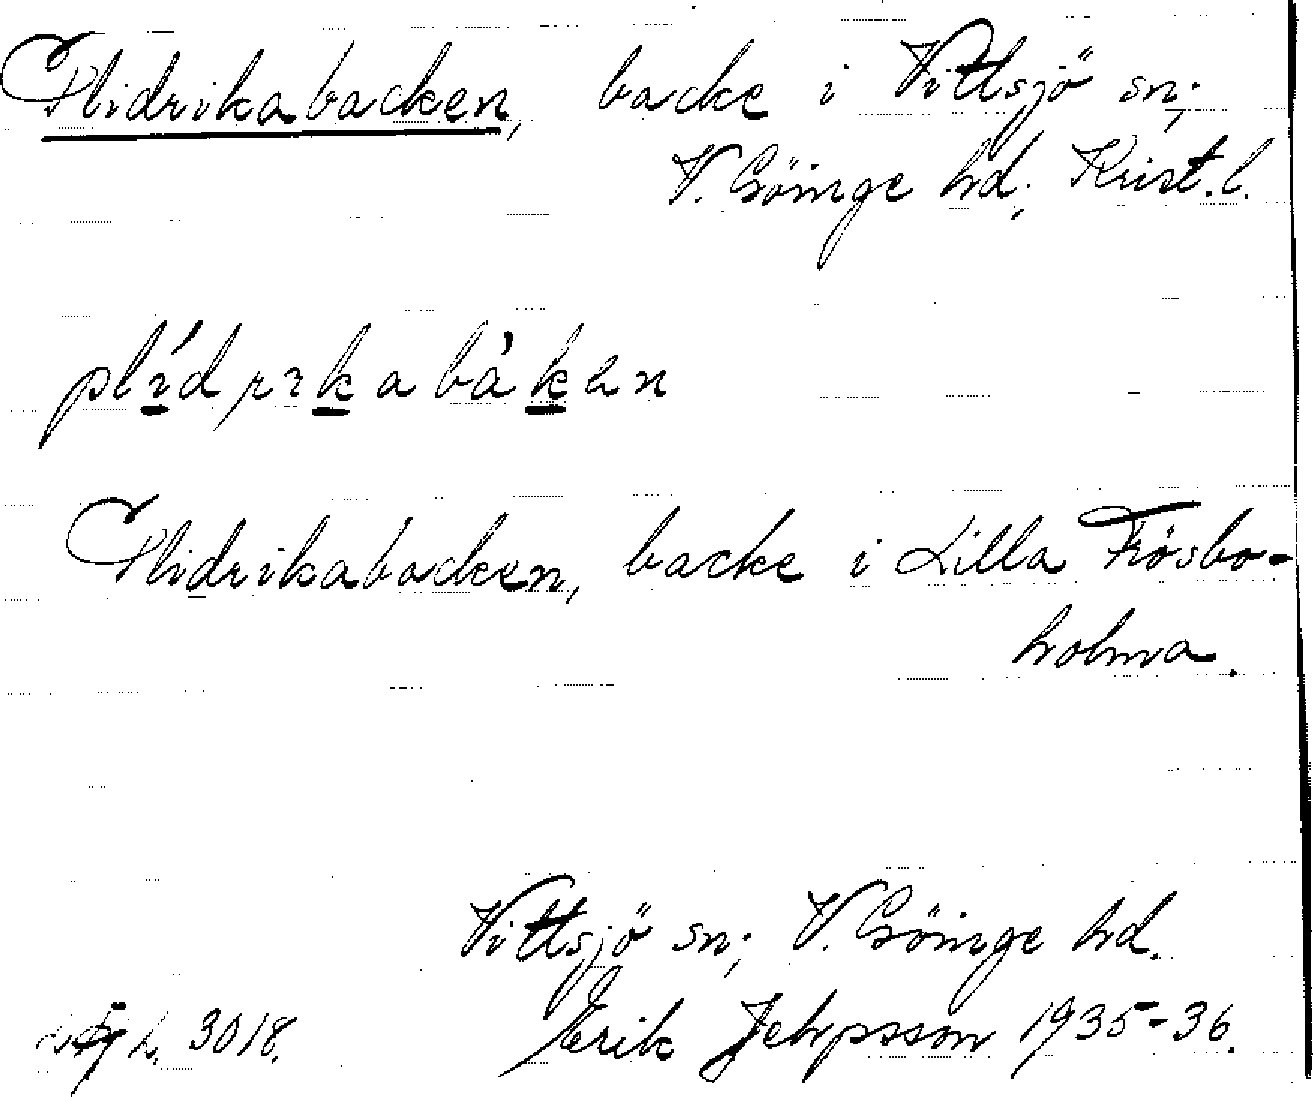 Plidrikabacken, backe i Vittsjö sn;
V. Göinge hd; Krist. l.
plídrikabàkan
Plidrikabacken, backe i Lilla Frösbo-
holma.
Vittsjö sn; V. Göinge hd.
3018. Erik Jeppsson 1935-36.